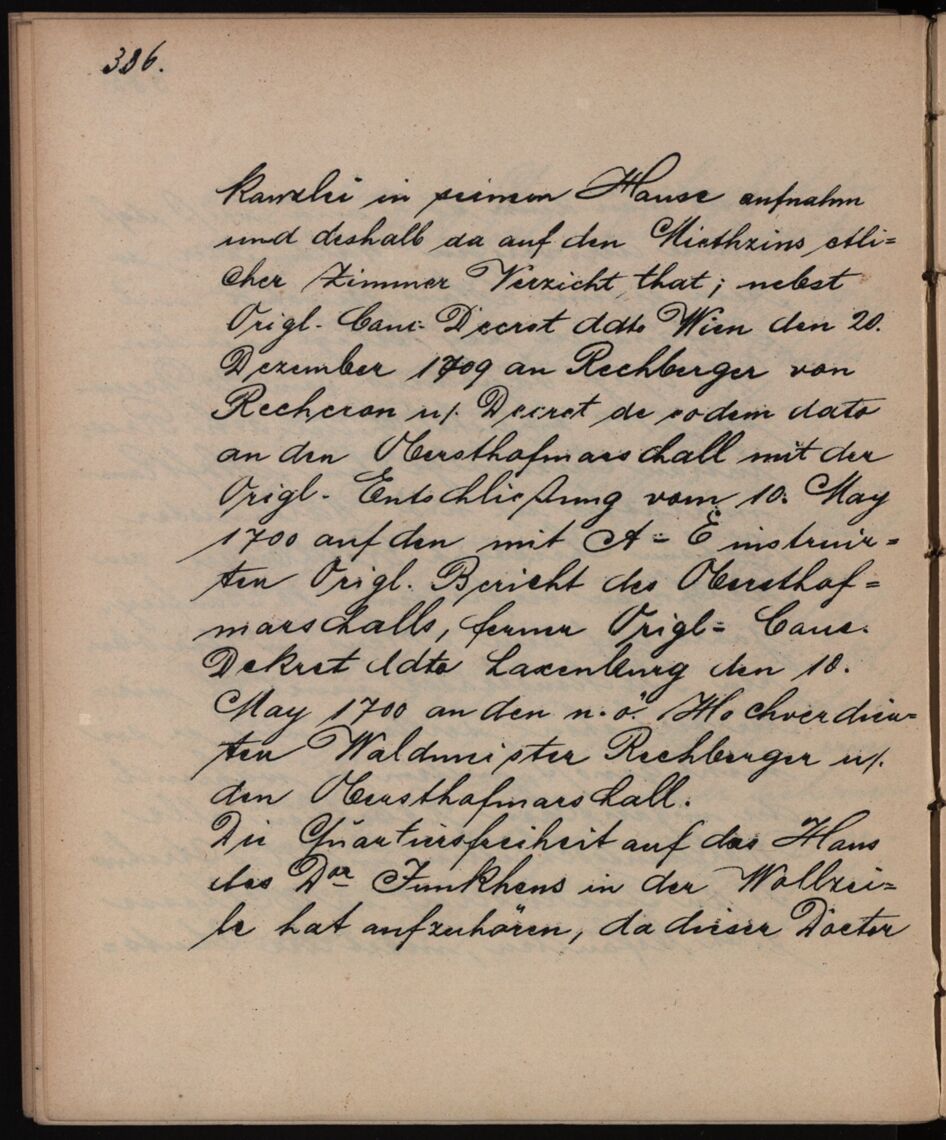 386.
Kanzlei in seinem Hause aufnahm
und deshalb da auf den Miethzins etli=
cher Zimmer Verzicht that; nebst
Origl. Canc= Decret ddto Wien den 20.
Dezember 1709 an Rechberger von
Rechcron u/. Decret de eodem dato
an den Obersthofmarschall mit der
Origl. Entschließung vom 10. May
1700 auf den mit A = E instruir=
ten Origl. Bericht des Obersthof=
marschalls, ferner Origl= Canc.
Dekret ddto Laxenburg den 10.
May 1700 an den n. ö. Hochverdien=
ten Waldmeister Rechberger u/.
den Obersthofmarschall.
Die Quartiersfreiheit auf das Haus
des Dor Funkhens in der Wollzei=
le hat aufzuhören, da dieser Doctor